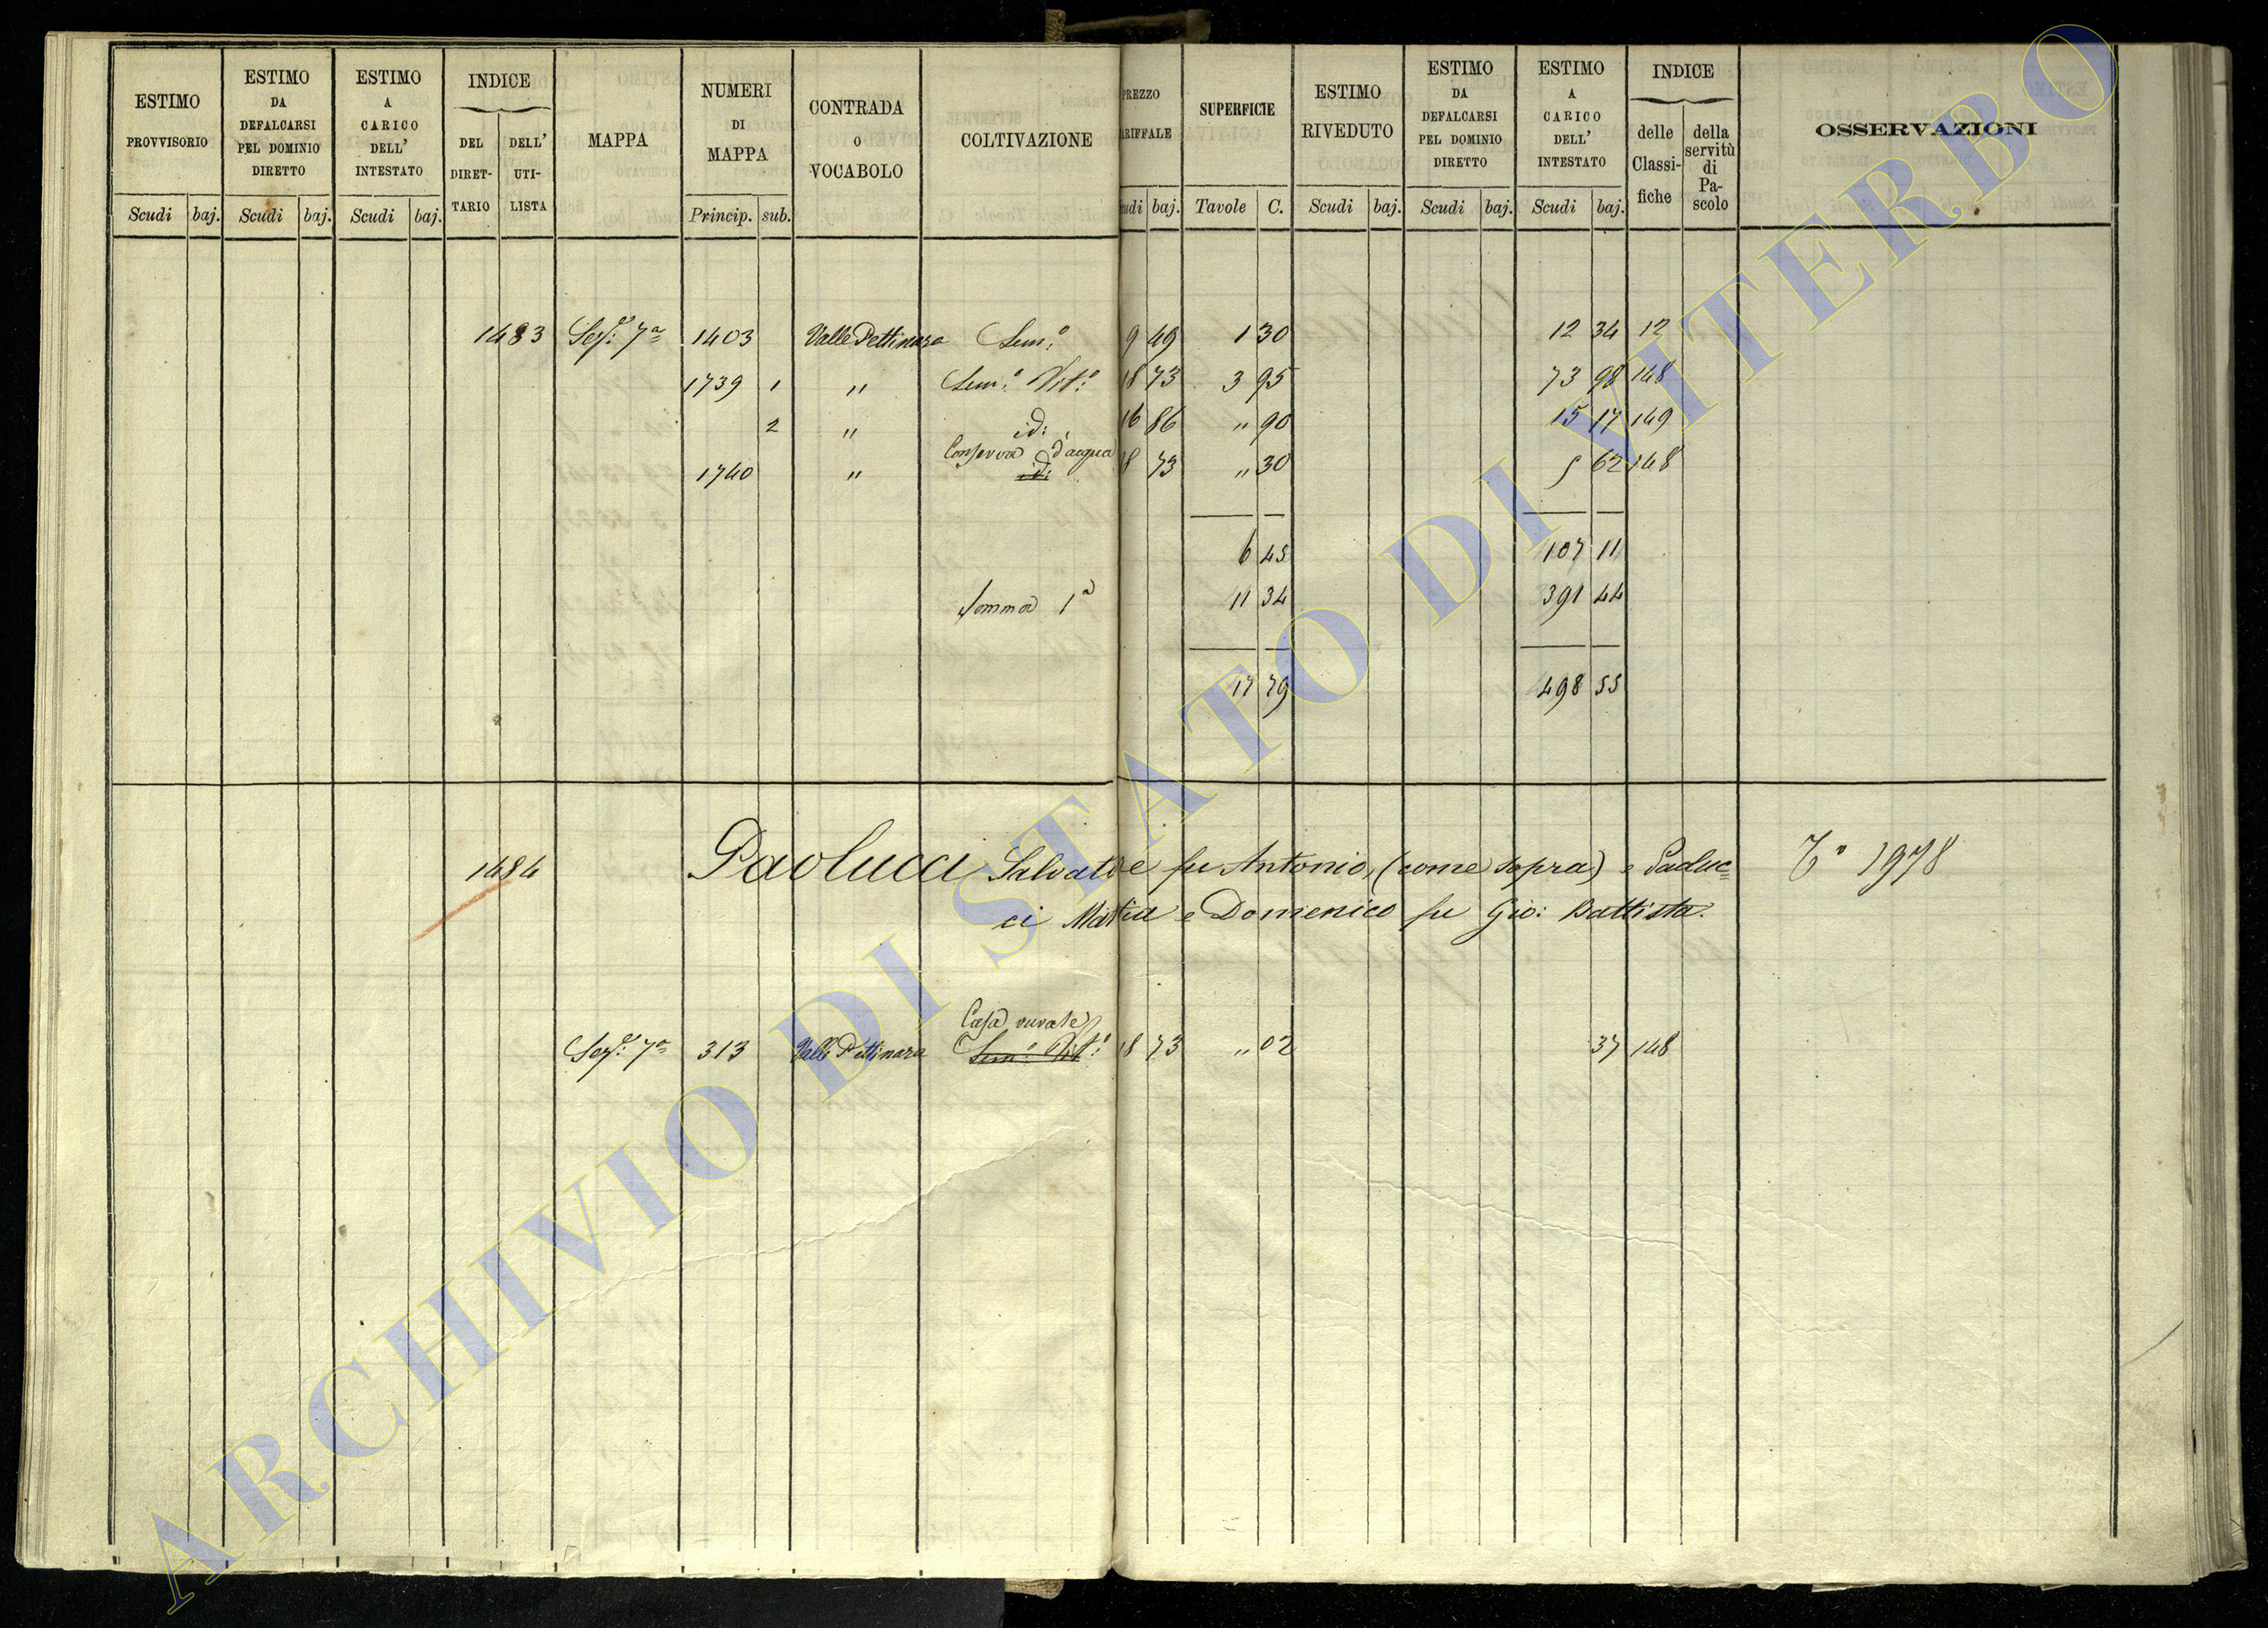 ESTIMO PROVVISORIO
ESTIMO DA DEFALCARSI PEL DOMINIO DIRETTO
ESTIMO A CARICO DELL' INTESTATO
INDICE
DEL DIRETTARIO
DELL' UTILISTA
MAPPA
NUMERI DI MAPPA
CONTRADA O VOCABOLO
COLTIVAZIONE
PREZZO ARIFFALE
SUPERFICIE
ESTIMO RIVEDUTO
ESTIMO DA DEFALCARSI PEL DOMINIO DIRETTO
ESTIMO A CARICO DELL' INTESTATO
INDICE
delle Classifiche
della servitù di Pascolo
OSSERVAZIONI
Scudi baj. Scudi baj. Scudi baj. Princip. sub. udi baj. Tavole C. Scudi baj. Scudi baj. Scudi baj.
1483 Sez.e 7a 1403 Valle Pettinara Sem.o 9 49 1 30 12 34 12
1739 1 " Sem.o Vit.o 18 73 3 95 73 98 148
2 " id: 16 86 " 90 15 17 149
Conserva d'acqua
1740 " id: 18 73 " 30 5 62 148
6 45 107 11
Somma 1a 11 34 391 44
17 79 498 55
1484 Paolucci Salvatore fu Antonio, (come sopra) e Paoluc=
ci Maria e Domenico fu Gio: Battista.
1978
Casa rurale
Sez.e 7a 313 Valle Pettinara Sem.o Vit.o 18 73 " 02 37 148
ARCHIVIO DI STATO DI VITERBO